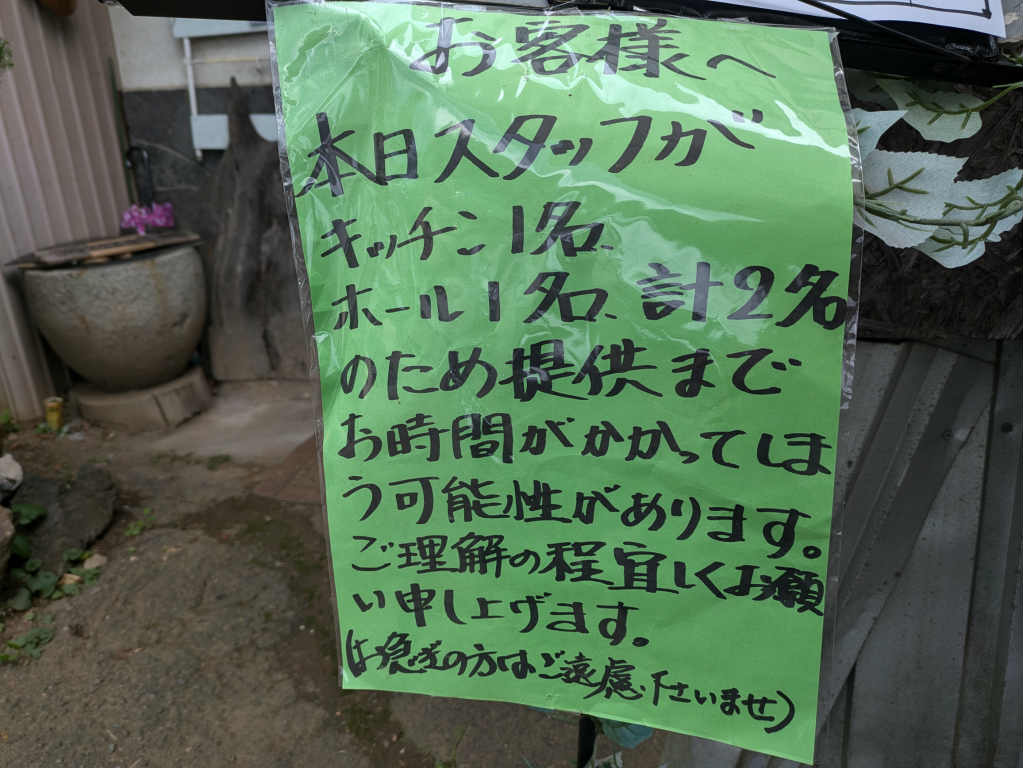 お客様へ
本日スタッフが
キッチン1名、
ホール1名、計2名
のため提供まで
お時間がかかってしま
う可能性があります。
ご理解の程宜しくお願
い申し上げます。
(お急ぎの方はご遠慮下さいませ)